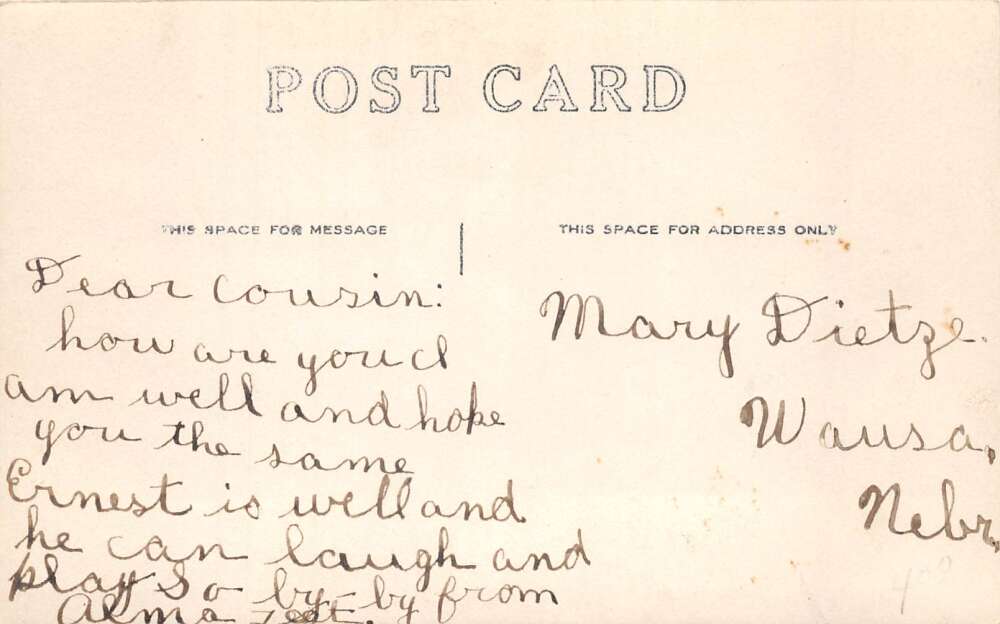 POST CARD
THIS SPACE FOR MESSAGE
THIS SPACE FOR ADDRESS ONLY
Dear cousin:
how are you I
am well and hope
you the same
Ernest is well and
he can laugh and
play so by-by from
Alma
Mary Dietze.
Wausa,
Nebr.
4⁰⁰